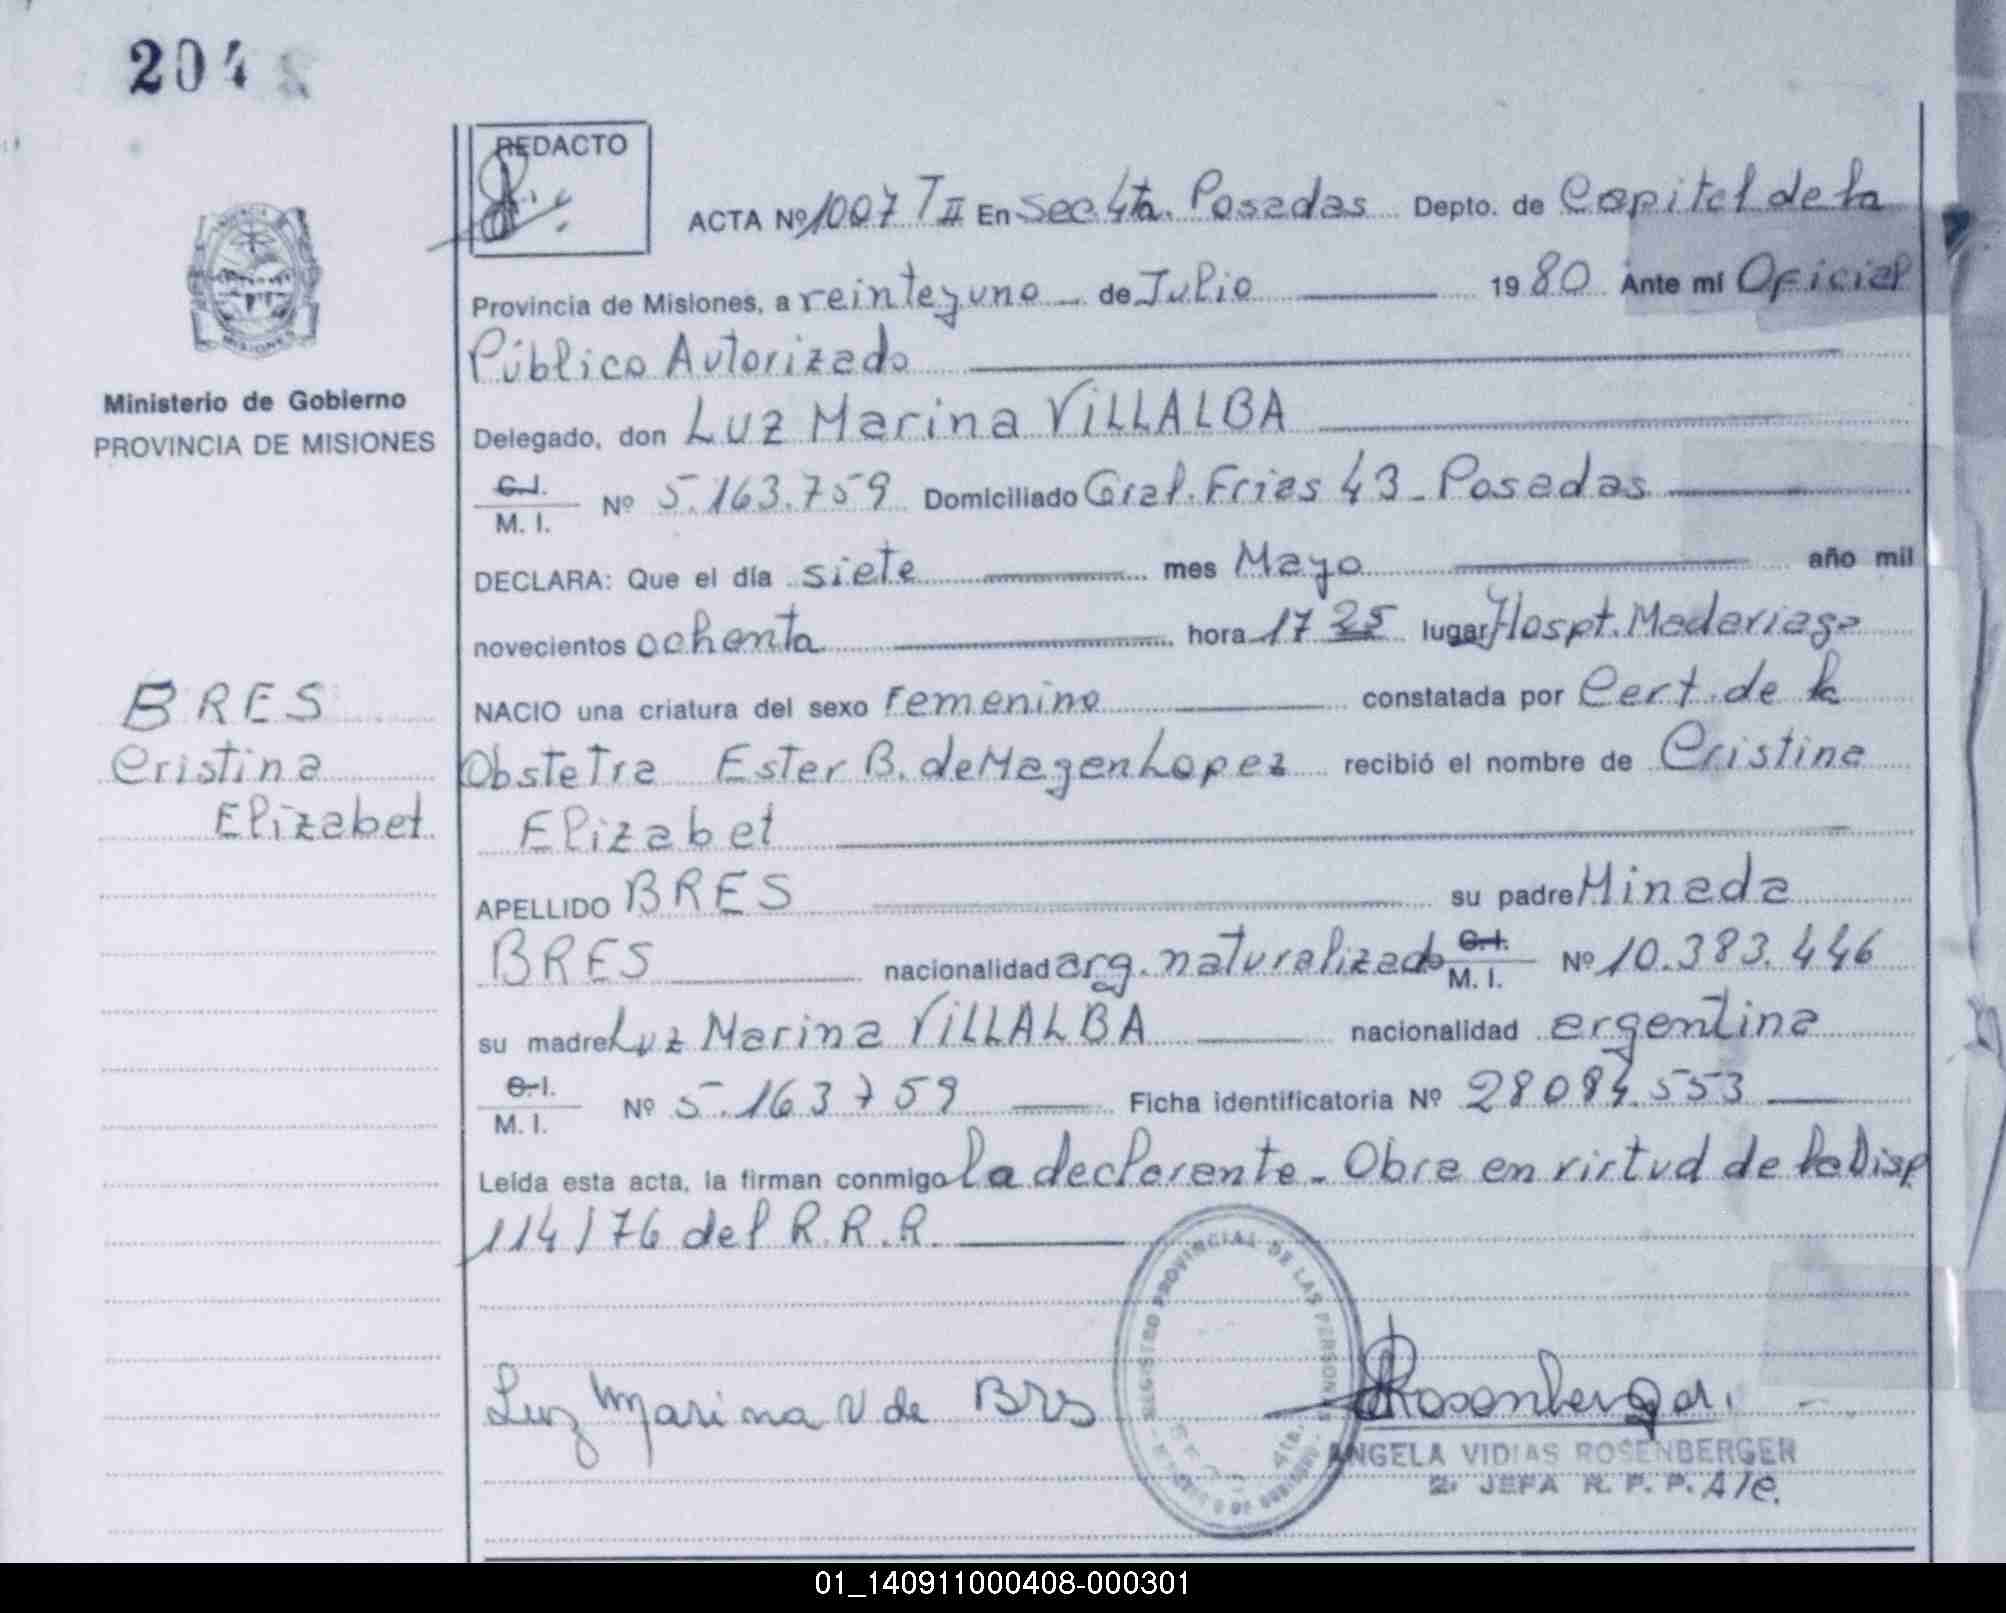 204
REDACTO
ACTA Nº 1007 T II En Sec 4ta. Posadas Depto. de Capital de la
Provincia de Misiones, a veinteyuno de Julio 1980 Ante mí Oficial
Público Autorizado
Ministerio de Gobierno
PROVINCIA DE MISIONES
Delegado, don Luz Marina VILLALBA
C.I. / M. I. Nº 5.163.759 Domiciliado Gral. Frias 43 - Posadas
DECLARA: Que el día siete mes Mayo año mil
novecientos ochenta hora 17 25 lugar Hospt. Madariaga
BRES
Cristina
Elizabet
NACIO una criatura del sexo Femenino constatada por Cert. de la
Obstetra Ester B. de Magen Lopez recibió el nombre de Cristina
Elizabet
APELLIDO BRES su padre Minada
BRES nacionalidad arg. naturalizado C.I. / M. I. Nº 10.383.446
su madre Luz Marina VILLALBA nacionalidad argentina
C.I. / M. I. Nº 5.163759 Ficha identificatoria Nº 28084.553
Leída esta acta, la firman conmigo la declarante - Obra en virtud de la Disp
114/76 del R.R.R.
REGISTRO PROVINCIAL DE LAS PERSONAS
SECC 4ta.
Luz Marina V de Brs
Rosenberger
ANGELA VIDIAS ROSENBERGER
2ª JEFA R. P. P. A/c.
01_140911000408-000301